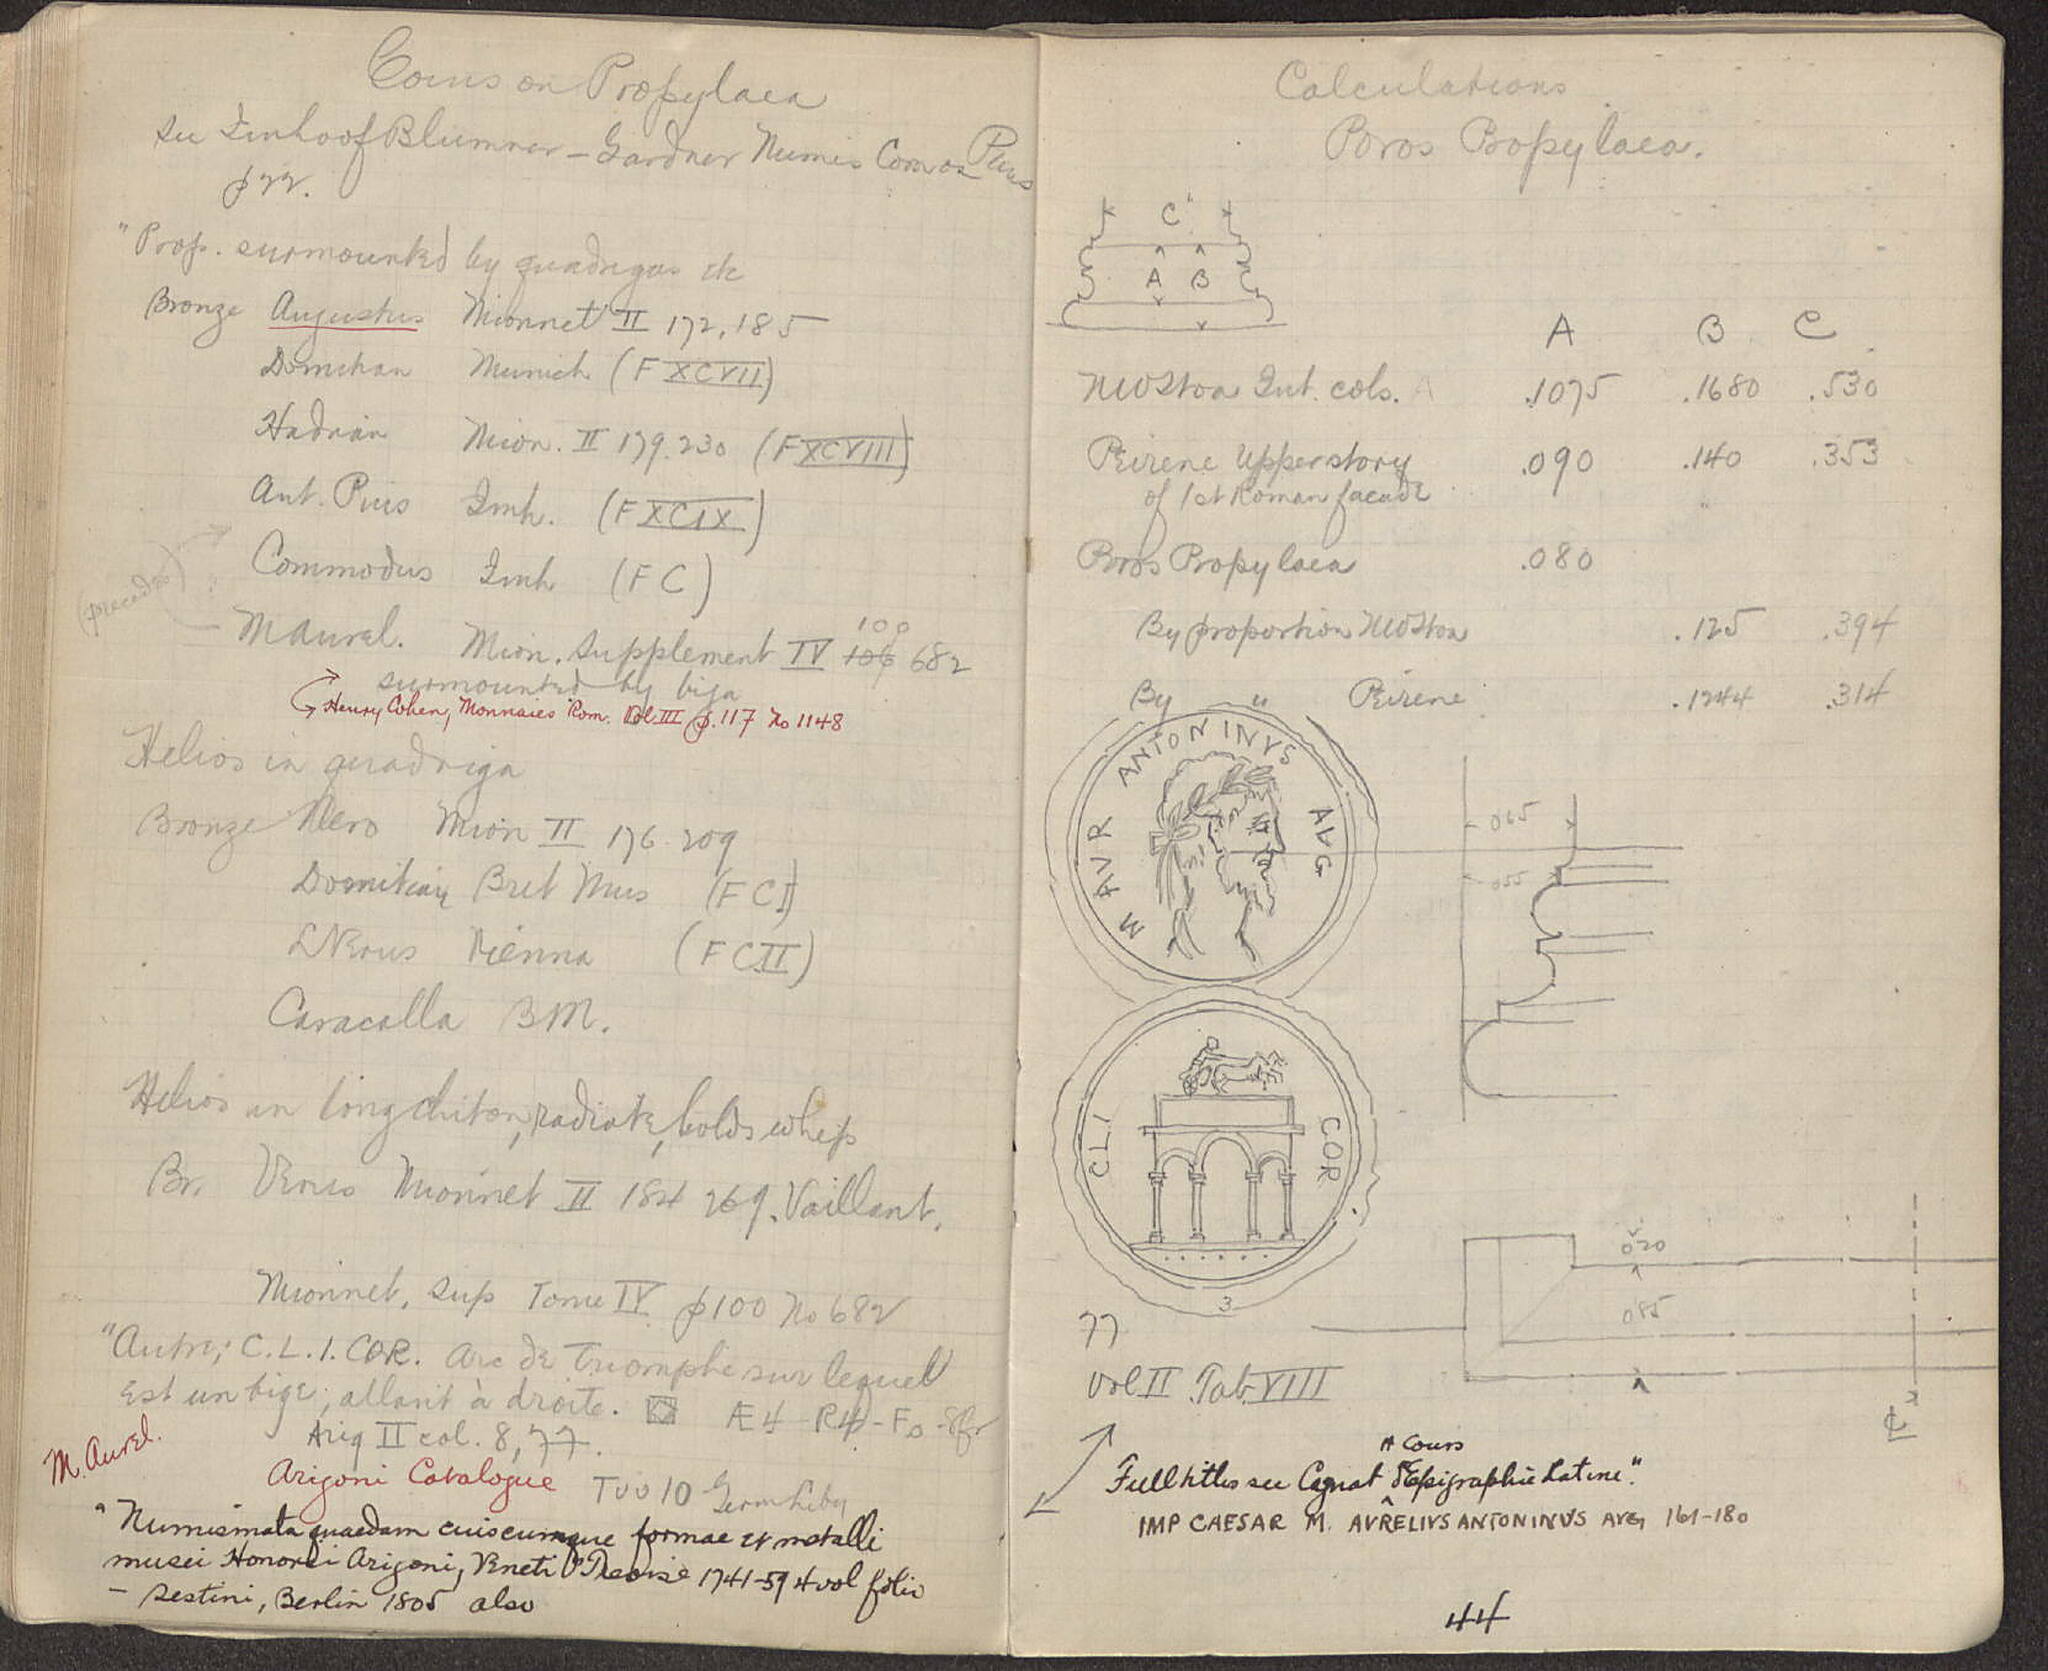 Coins on Propylaea
See Imhoof Blumner – Gardner Numis Com on Paus
p 22.
"Prop. surmounted by quadrigas etc
Bronze Augustus Mionnet II 172, 185
Domitian Munich (F XCVII)
Hadrian Mion. II 179. 230 (F XCVIII)
Ant. Pius Imh. (F XCIX)
Commodus Imh (F C)
(precedes)
M Aurel. Mion. Supplement IV 106 100 682
surmounted by biga
Henry Cohen, Monnaies Rom. Vol III p. 117 No 1148
Helios in quadriga
Bronze Nero Mion II 176 209
Domitian Brit Mus (F CI)
L Verus Vienna (F CII)
Caracalla BM.
Helios in long chiton, radiate, holds whip
Br. Verus Mionnet II 184 269. Vaillant.
Mionnet, Sup Tome IV p 100 No 682
"Autre; C.L.I.COR. Arc de Triomphe sur lequel
est un bige; allant à droite. Æ4 – R4 – Fo – 8fr
Arig II col. 8, 77.
M. Aurel.
Arigoni Catalogue Too 10 Germ Liby
"Numismata quaedam cuiscumque formae et metalli
musei Honorii Arigoni, Veneti Trevise 1741–59 4 vol folio
– Sestini, Berlin 1805 also
Calculations
Poros Propylaea.
C
A B
A B C
NW Stoa Int. cols. .1075 .1680 .530
Peirene Upper story .090 .140 .353
of 1st Roman facade
Poros Propylaea .080
By proportion NW Stoa .125 .394
By " Peirene .1244 .314
M AVR ANTONINVS AVG
065
055
CLI COR
3
020
085
77
Vol II Tab VIII
℄
Full titles see Cagnat "Cours d'Epigraphie Latine".
IMP CAESAR M. AVRELIVS ANTONINVS AVG 161–180
44